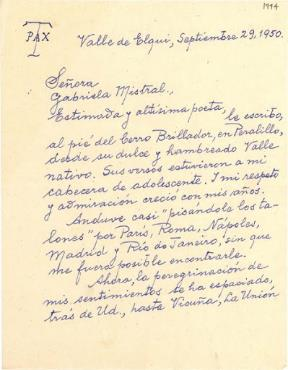 1944
PAX
Valle de Elqui, Septiembre 29, 1950.
Señora
Gabriela Mistral.,
Estimada y altísima poeta, le escribo,
al pié del Cerro Brillador, en Peralillo,
desde su dulce y hambreado Valle
nativo. Sus versos estuvieron a mi
cabecera de adolescente. I mi respeto
y admiración creció con mis años.
Anduve casi "pisándola los ta-
lones" por París, Roma, Nápoles,
Madrid y Río de Janeiro, sin que
me fuera posible encontrarle.
Ahora, la peregrinación de
mis sentimientos se ha espaciado,
trás de Ud., hasta Vicuña, La Unión